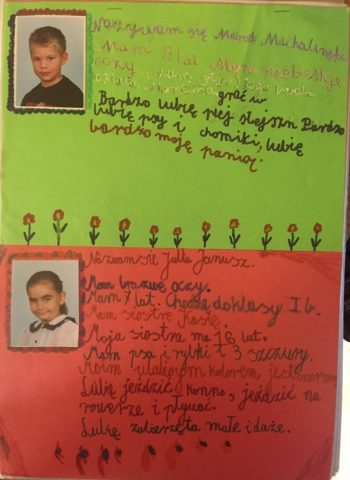 Nazywam się Marat Machaliński
Mam 8 lat Mam niebieskie
oczy i mam
grać w
Bardzo lubię plej stejszn Bardzo
lubię psy i chomiki, lubię
bardzo moją panią.
Nazwamsie Julia Janusz.
Mam brązwe oczy.
Mam 7 lat. Chodzę do klasy I b.
Mam siostrę Kasię.
Moja siostra ma 16 lat.
Mam psa i rybki i 3 szczury.
Moim ulubiąnym kolorem jest czerwony
Lubię jeździć konno, jeździć na
rowerze i pływać.
Lubię zwierzęta małe i duże.